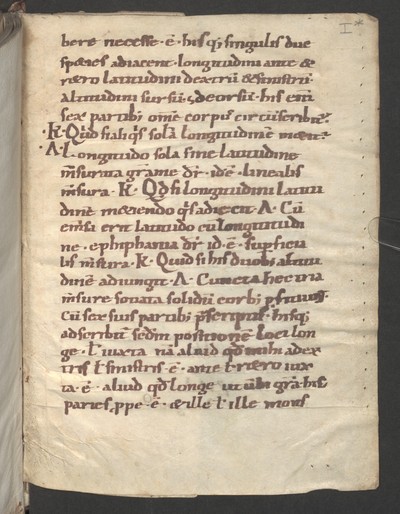 bere necesse · ē · his q; singulis due
species adiacent · longitudini ante &
retro latitudini dextrū & sinistrū ·
altitudini sursū; & deorsū · his eni
sex partibȝ om̄e corpȝ circūscribit᷑ ·
K · Qd si aliq͛s solā longitudinē
A · Longitudo sola sine latitudine
m̄surata gramme dr̄ · id · ē · linealis
m̄sura · K · Qd si longitudini latitu
dinē q͛s adiecit · A · Cū
erit latitudo cū longitudi
ne · epiphania dr̄ · id · ē · supficia
lis m̄sura · K · Quid si his duobȝ altitu
dinē adiungit · A · Cuncta hec tria
m̄sure solidū corpȝ
Cū sex suis partibȝ p̄scriptis · hisq;
adscribunt᷑ sedm̄ positionē loci lon
ge · ł iuxta nā aliud qd mihi a dex
tris ł sinistris · ē · ante ł retro iux
ta · ē · aliud qd longe ut ubi grā his
paries, ppe · ē · & ille ł ille mons